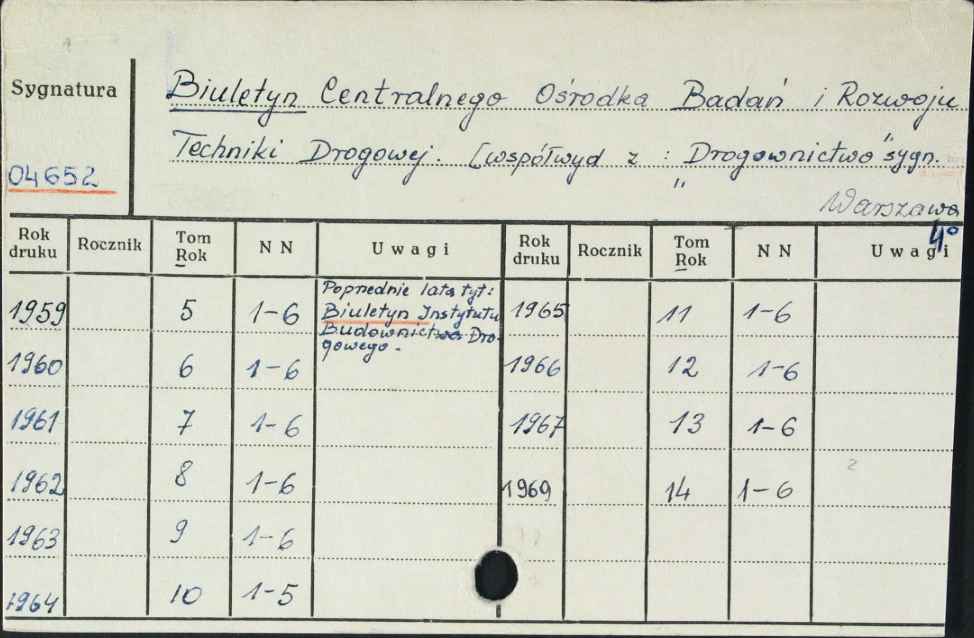 Sygnatura
04652
Biuletyn Centralnego Ośrodka Badań i Rozwoju
Techniki Drogowej. [współwyd z : "Drogownictwo" sygn.
Warszawa
4°
Rok druku Rocznik Tom Rok N N Uwagi Rok druku Rocznik Tom Rok N N Uwagi
1959 5 1-6 Poprzednie lata tyt: 1965 11 1-6
Biuletyn Instytutu
Budownictwa Dro-
gowego.
1960 6 1-6 1966 12 1-6
1961 7 1-6 1967 13 1-6
1962 8 1-6 1969 14 1-6
1963 9 1-6
1964 10 1-5
2